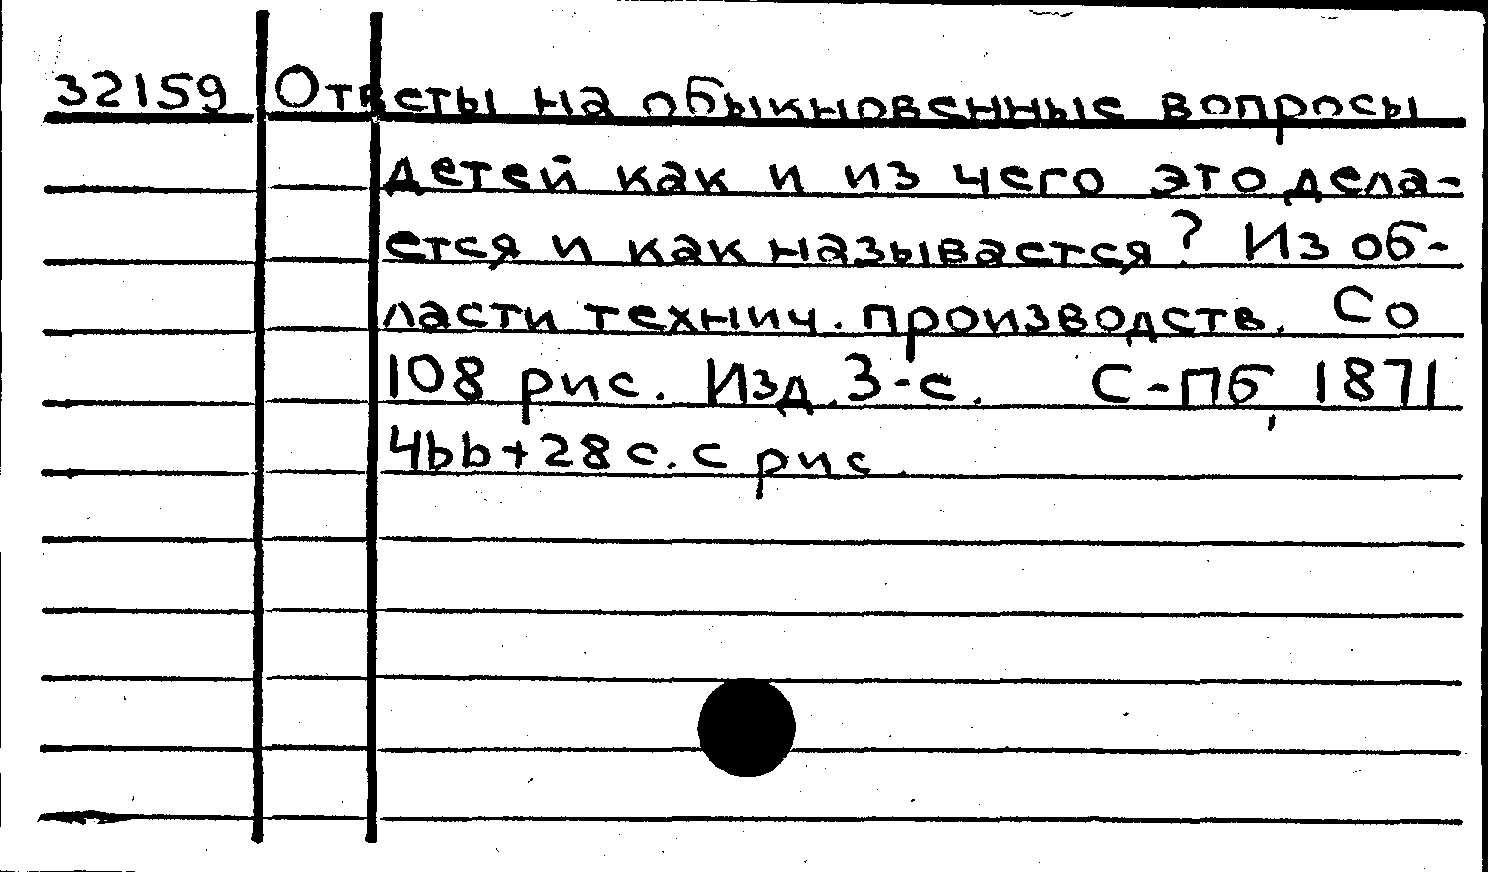 32159 Ответы на обыкновенные вопросы
детей как и из чего это дела-
ется и как называется? Из об-
ласти технич. производств. Со
108 рис. Изд. 3-е. С-Пб, 1871
466+28 с. с рис.